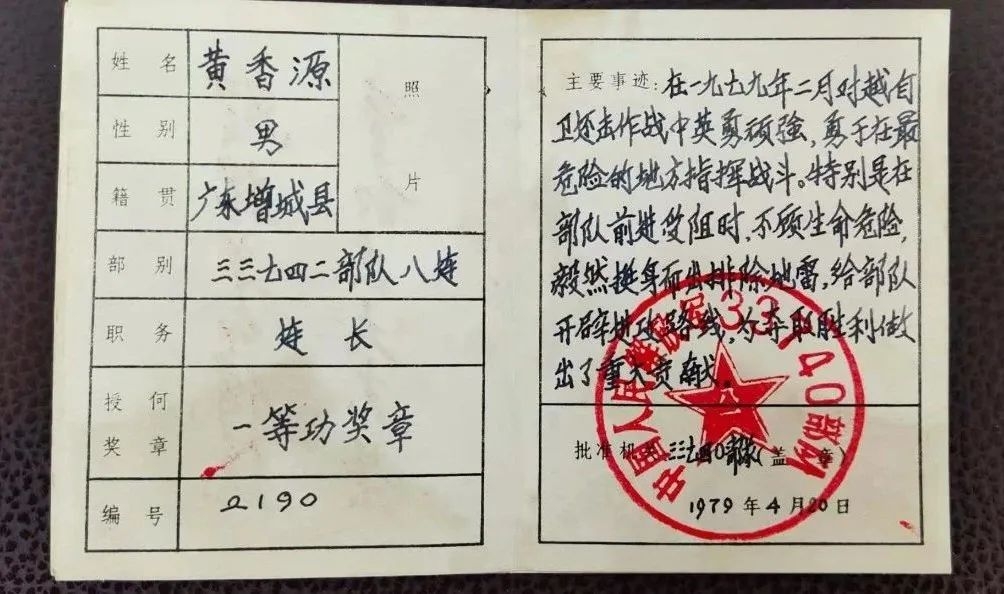 姓名 黄香源
性别 男
籍贯 广东增城县
照片
部别 三三七四二部队八连
职务 连长
授何奖章 一等功奖章
编号 2190
主要事迹:在一九七九年二月对越自
卫还击作战中英勇顽强,勇于在最
危险的地方指挥战斗。特别是在
部队前进受阻时,不顾生命危险,
毅然挺身而出排除地雷,给部队
开辟进攻路线,为夺取胜利做
出了重大贡献。
批准机关 三三七四〇部队(盖章)
1979年4月20日
中国人民解放军33740部队